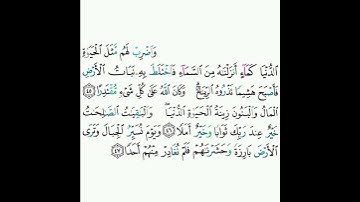 وَٱضْرِبْ لَهُم مَّثَلَ ٱلْحَيَوٰةِ
ٱلدُّنْيَا كَمَآءٍ أَنزَلْنَٰهُ مِنَ ٱلسَّمَآءِ فَٱخْتَلَطَ بِهِۦ نَبَاتُ ٱلْأَرْضِ
فَأَصْبَحَ هَشِيمًا تَذْرُوهُ ٱلرِّيَٰحُ ۗ وَكَانَ ٱللَّهُ عَلَىٰ كُلِّ شَىْءٍ مُّقْتَدِرًا ٤٥
ٱلْمَالُ وَٱلْبَنُونَ زِينَةُ ٱلْحَيَوٰةِ ٱلدُّنْيَا ۖ وَٱلْبَٰقِيَٰتُ ٱلصَّٰلِحَٰتُ
خَيْرٌ عِندَ رَبِّكَ ثَوَابًا وَخَيْرٌ أَمَلًا ٤٦ وَيَوْمَ نُسَيِّرُ ٱلْجِبَالَ وَتَرَى
ٱلْأَرْضَ بَارِزَةً وَحَشَرْنَٰهُمْ فَلَمْ نُغَادِرْ مِنْهُمْ أَحَدًا ٤٧